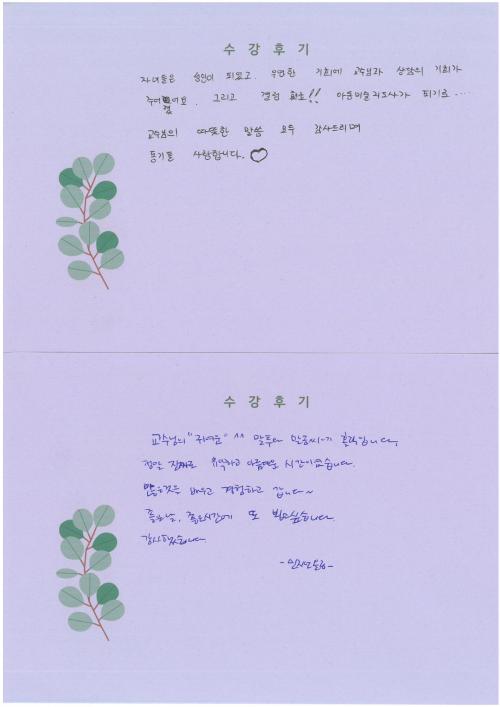 수 강 후 기
자녀들은 성인이 되었고. 우연한 기회에 교수님과 상담의 기회가
주어졌어요. 그리고 결심 했죠!! 아동미술지도사가 되기로....
교수님의 따뜻한 말씀 모두 감사드리며
동기들 사랑합니다. ♡
수 강 후 기
교수님의 "귀여운" ^^ 말투와 말솜씨가 매력입니다,
정말 유익하고 아름다운 시간이었습니다.
많은것을 배우고 경험하고 갑니다~
좋은날, 좋은시간에 또 뵙고싶습니다
감사했습니다